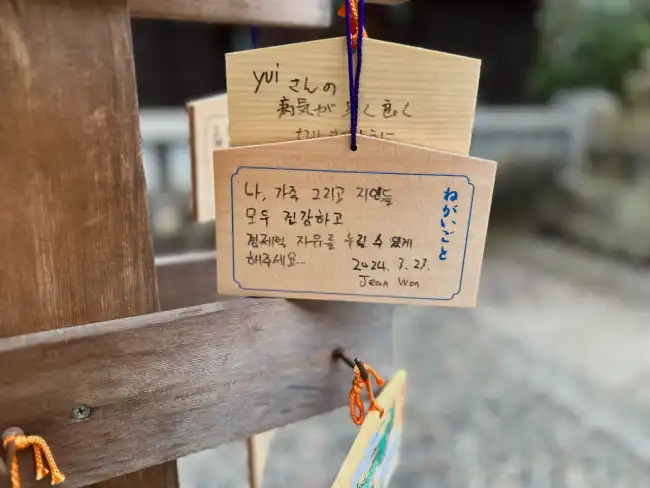 yui さんの
病気が早く良く
나, 가족 그리고 지인들
모두 건강하고
경제적 자유를 누릴 수 있게
해주세요...
2024. 3. 23.
Jean Won
ねがいごと